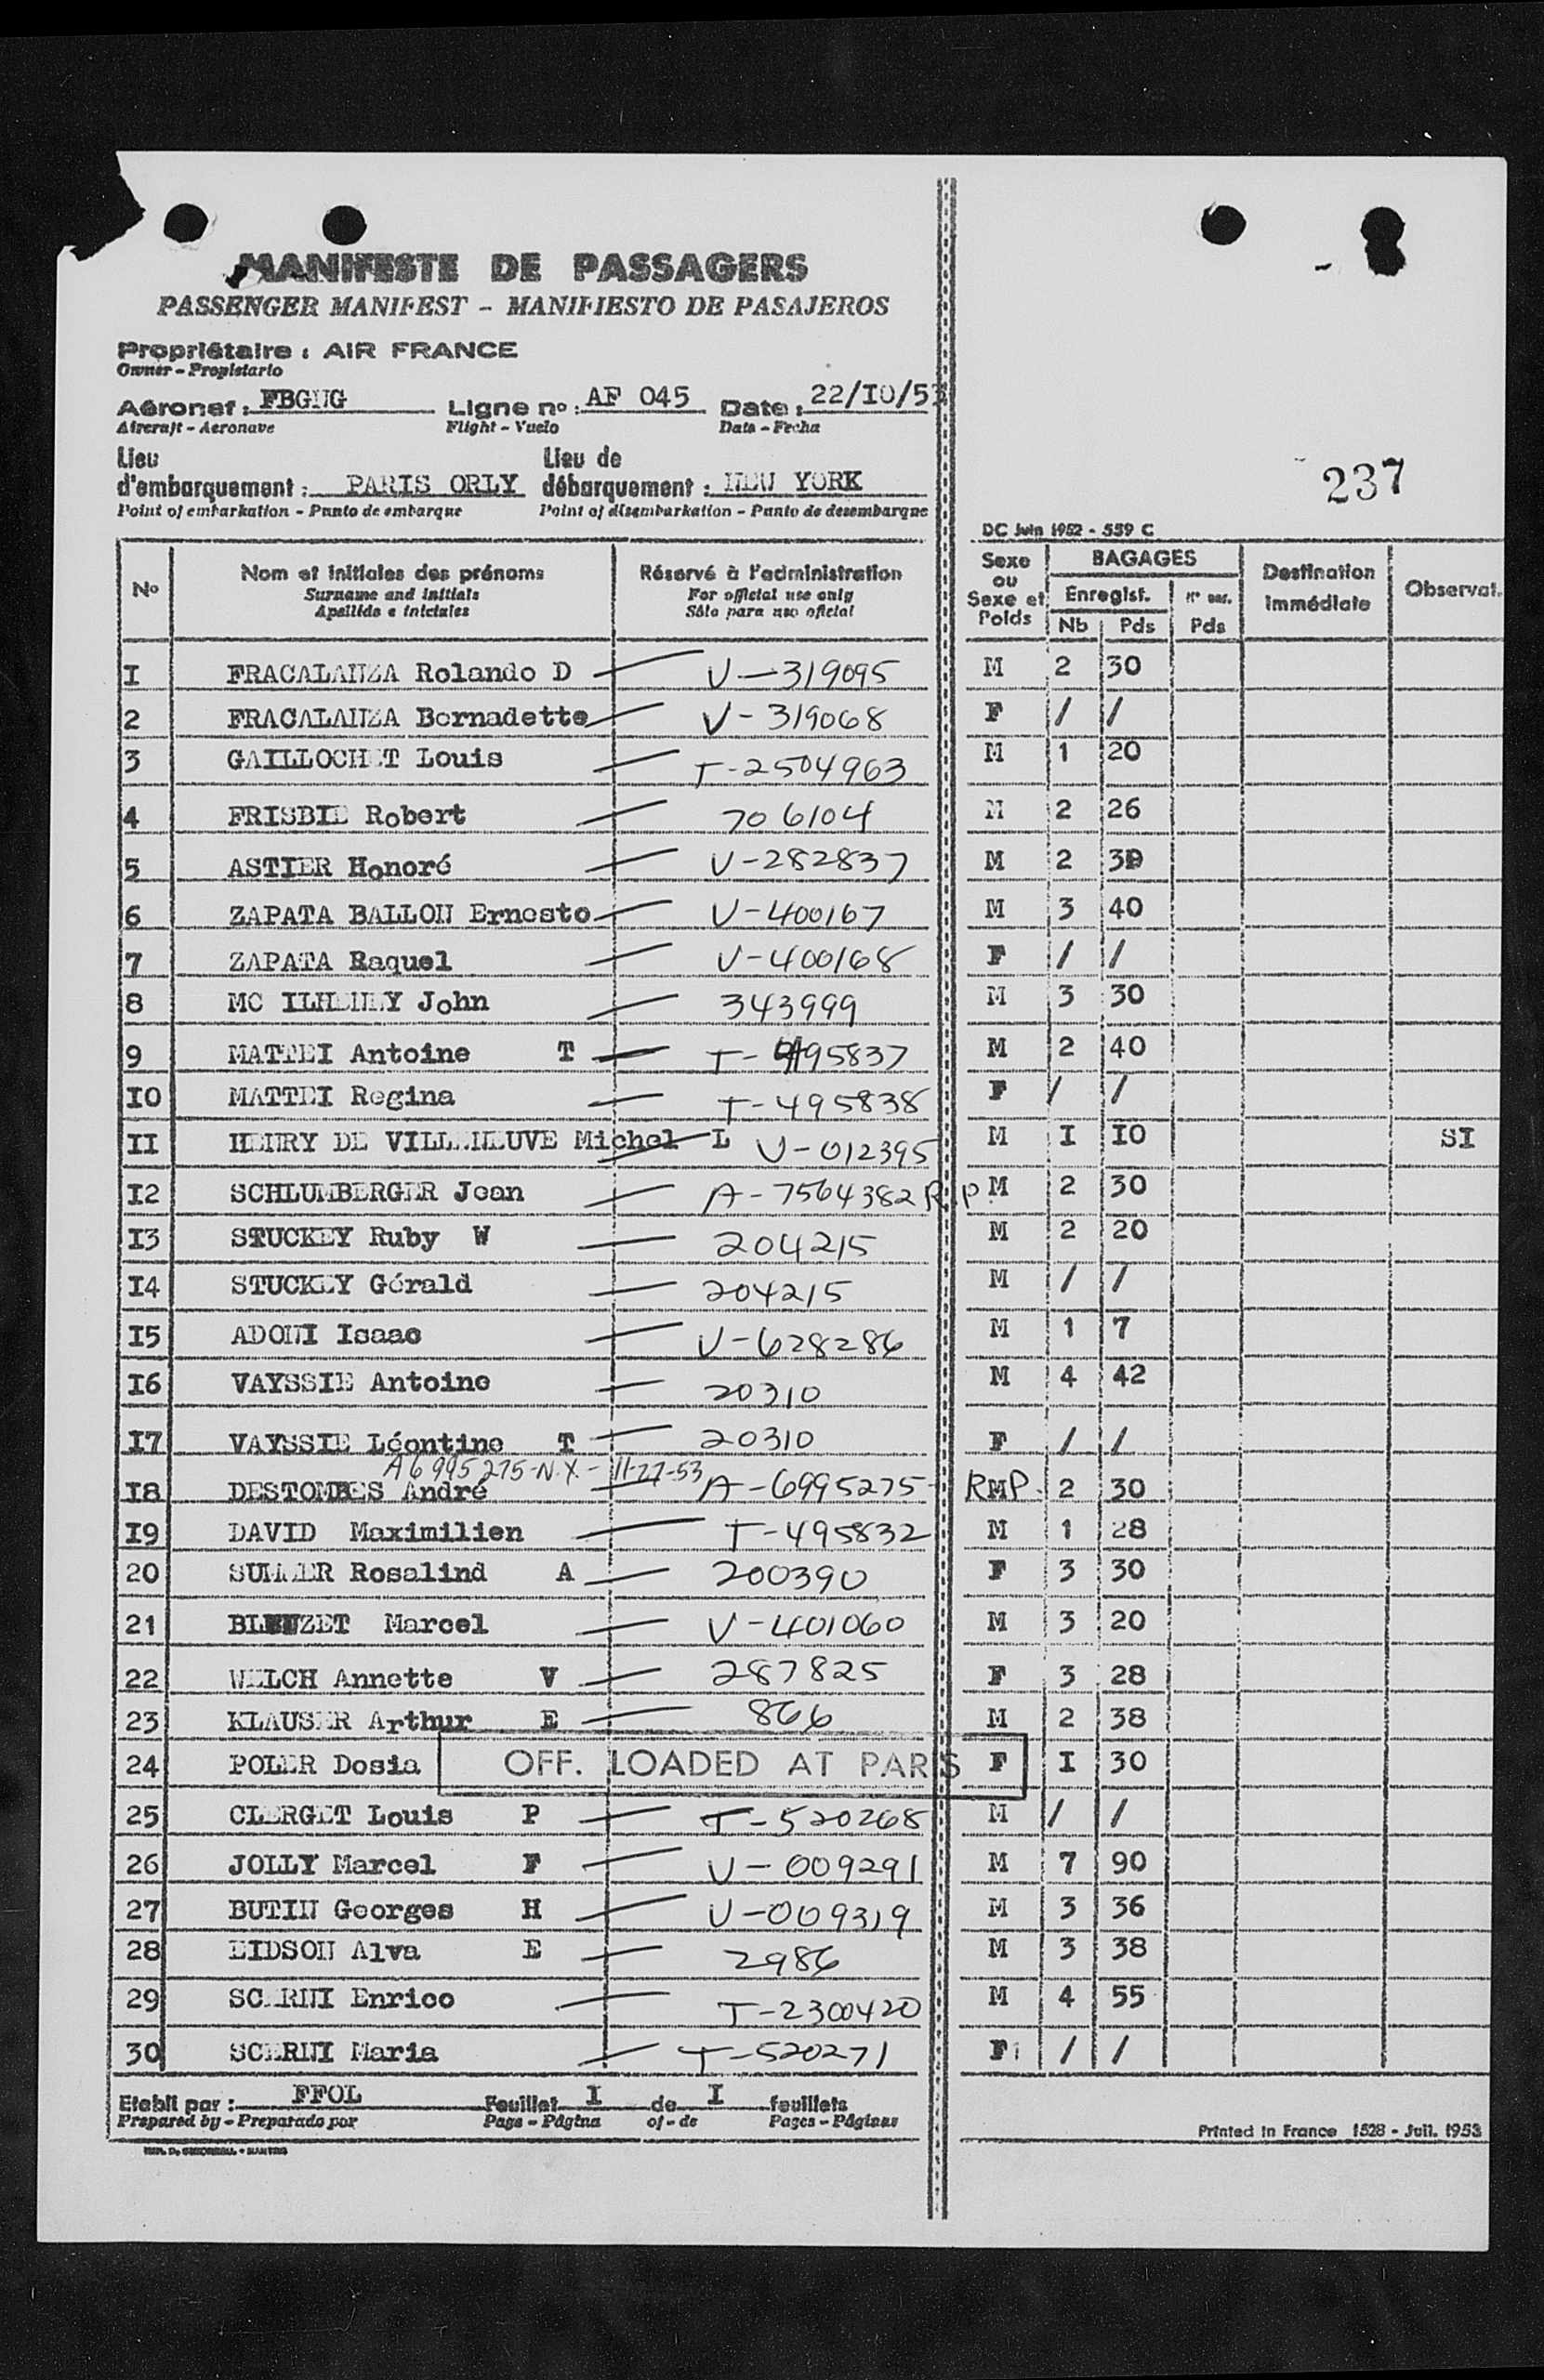 MANIFESTE DE PASSAGERS
PASSENGER MANIFEST - MANIFIESTO DE PASAJEROS
Propriétaire : AIR FRANCE
Owner - Propietario
Aéronef : FBGNG Ligne nº : AF 045 Date : 22/I0/53
Aircraft - Aeronave Flight - Vuelo Date - Fecha
Lieu d'embarquement : PARIS ORLY Lieu de débarquement : NEW YORK
Point of embarkation - Punto de embarque Point of disembarkation - Punto de desembarque
237
DC Juin 1952 - 559 C
Nº Nom et initiales des prénoms Réservé à l'administration Sexe ou Sexe et Poids BAGAGES Destination immédiate Observat.
Surname and initials For official use only Enregist. Nº enr.
Apellido e iniciales Sólo para uso oficial Nb Pds Pds
I FRACALANZA Rolando D — V-319095 M 2 30
2 FRACALANZA Bernadette — V-319068 F / /
3 GAILLOCHET Louis — T-2504963 M 1 20
4 FRISBIE Robert — 706104 M 2 26
5 ASTIER Honoré — V-282837 M 2 30
6 ZAPATA BALLON Ernesto — V-400167 M 3 40
7 ZAPATA Raquel — V-400168 F / /
8 MC ILHENEY John — 343999 M 3 30
9 MATTEI Antoine T — T-495837 M 2 40
I0 MATTEI Regina — T-495838 F / /
II HENRY DE VILLENEUVE Michel L V-012395 M I I0 SI
I2 SCHLUMBERGER Jean — A-7564382 R.P. M 2 30
I3 STUCKEY Ruby W — 204215 M 2 20
I4 STUCKEY Gérald — 204215 M / /
I5 ADONI Isaac — V-628286 M 1 7
I6 VAYSSIE Antoine — 20310 M 4 42
I7 VAYSSIE Léontine T — 20310 F / /
A6995275-N.Y.- 11-27-53
I8 DESTOMBES André — A-6995275- RMP. 2 30
I9 DAVID Maximilien — T-495832 M 1 28
20 Rosalind A — 200390 F 3 30
21 BLEUZET Marcel — V-401060 M 3 20
22 WELCH Annette V — 287825 F 3 28
23 KLAUSER Arthur E — 866 M 2 38
24 POLER Dosia OFF. LOADED AT PARIS F I 30
25 CLERGET Louis P — T-520268 M / /
26 JOLLY Marcel F — V-009291 M 7 90
27 BUTIN Georges H — V-009319 M 3 36
28 EIDSON Alva E — 2986 M 3 38
29 SCERNI Enrico — T-2300420 M 4 55
30 SCERNI Maria — T-520271 F / /
Etabli par : FFOL Feuillet I de I feuillets
Prepared by - Preparado por Page - Página of - de Pages - Páginas
Printed in France 1528 - Juil. 1953